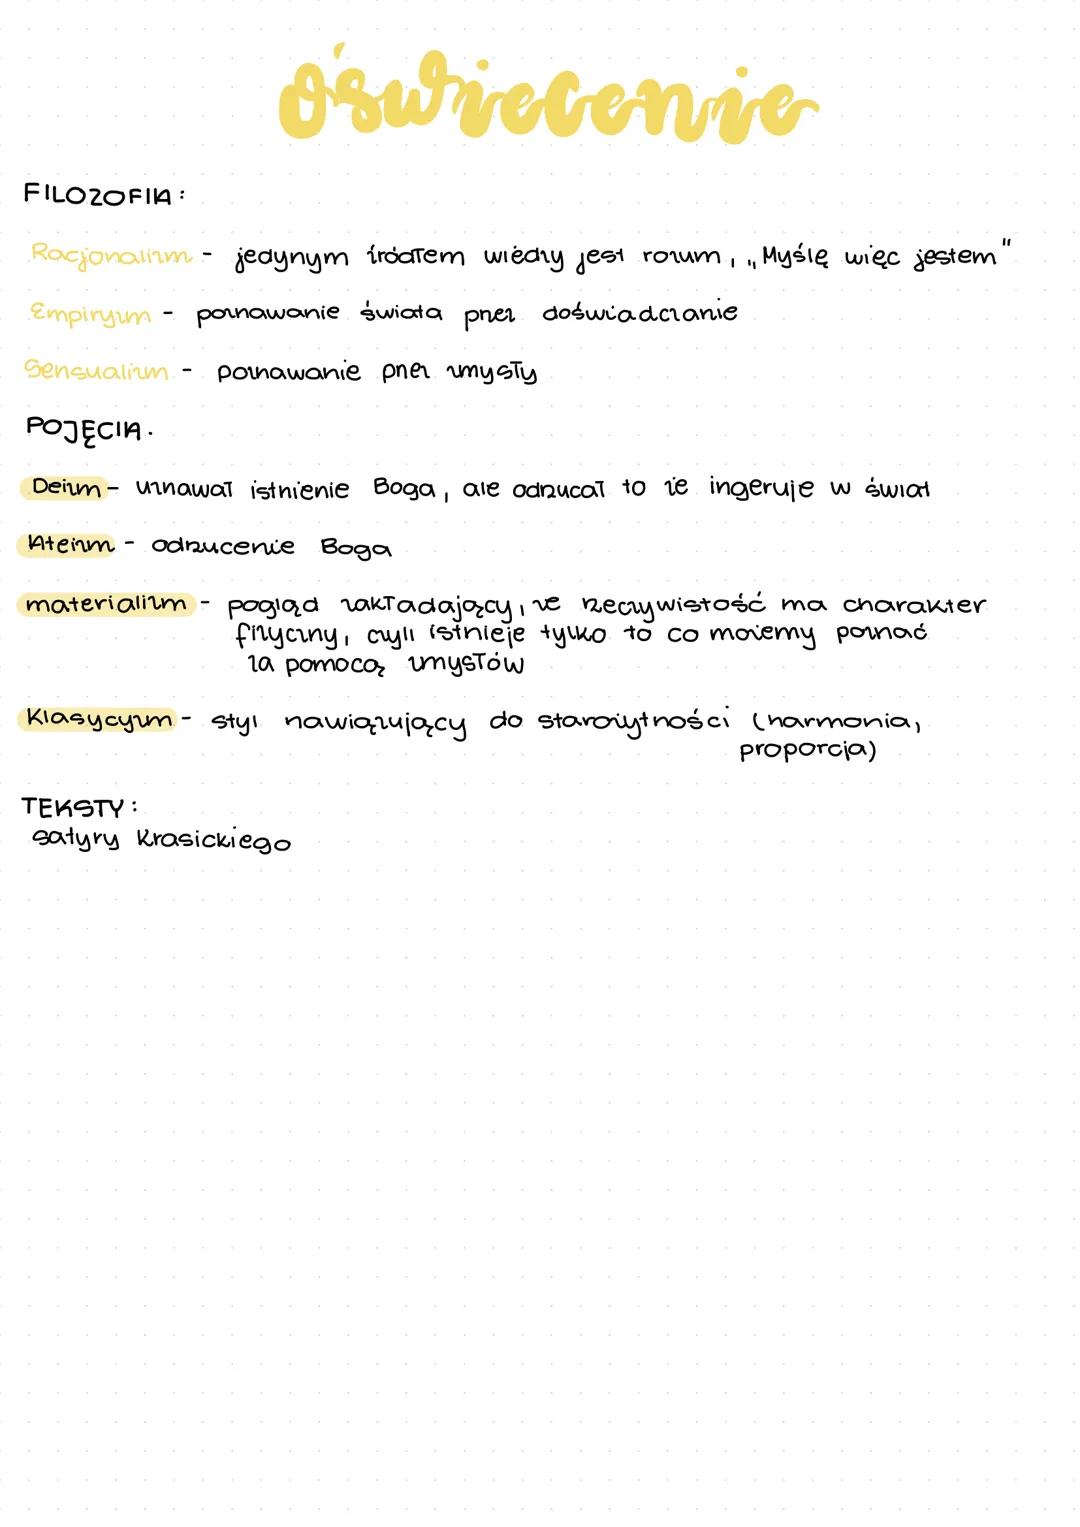 oświecenie
FILOZOFIA:
Racjonalizm - jedynym źródłem wiedzy jest rozum, „Myślę więc jestem"
Empiryzm - poznawanie świata przez doświadczanie
Sensualizm - poznawanie przez zmysły
POJĘCIA.
Deizm - uznawał istnienie Boga, ale odrzucał to że ingeruje w świat
Ateizm - odrzucenie Boga
materializm - pogląd zakładający, że rzeczywistość ma charakter
fizyczny, czyli istnieje tylko to co możemy poznać
za pomocą zmysłów
Klasycyzm - styl nawiązujący do starożytności (harmonia,
proporcja)
TEKSTY:
satyry Krasickiego